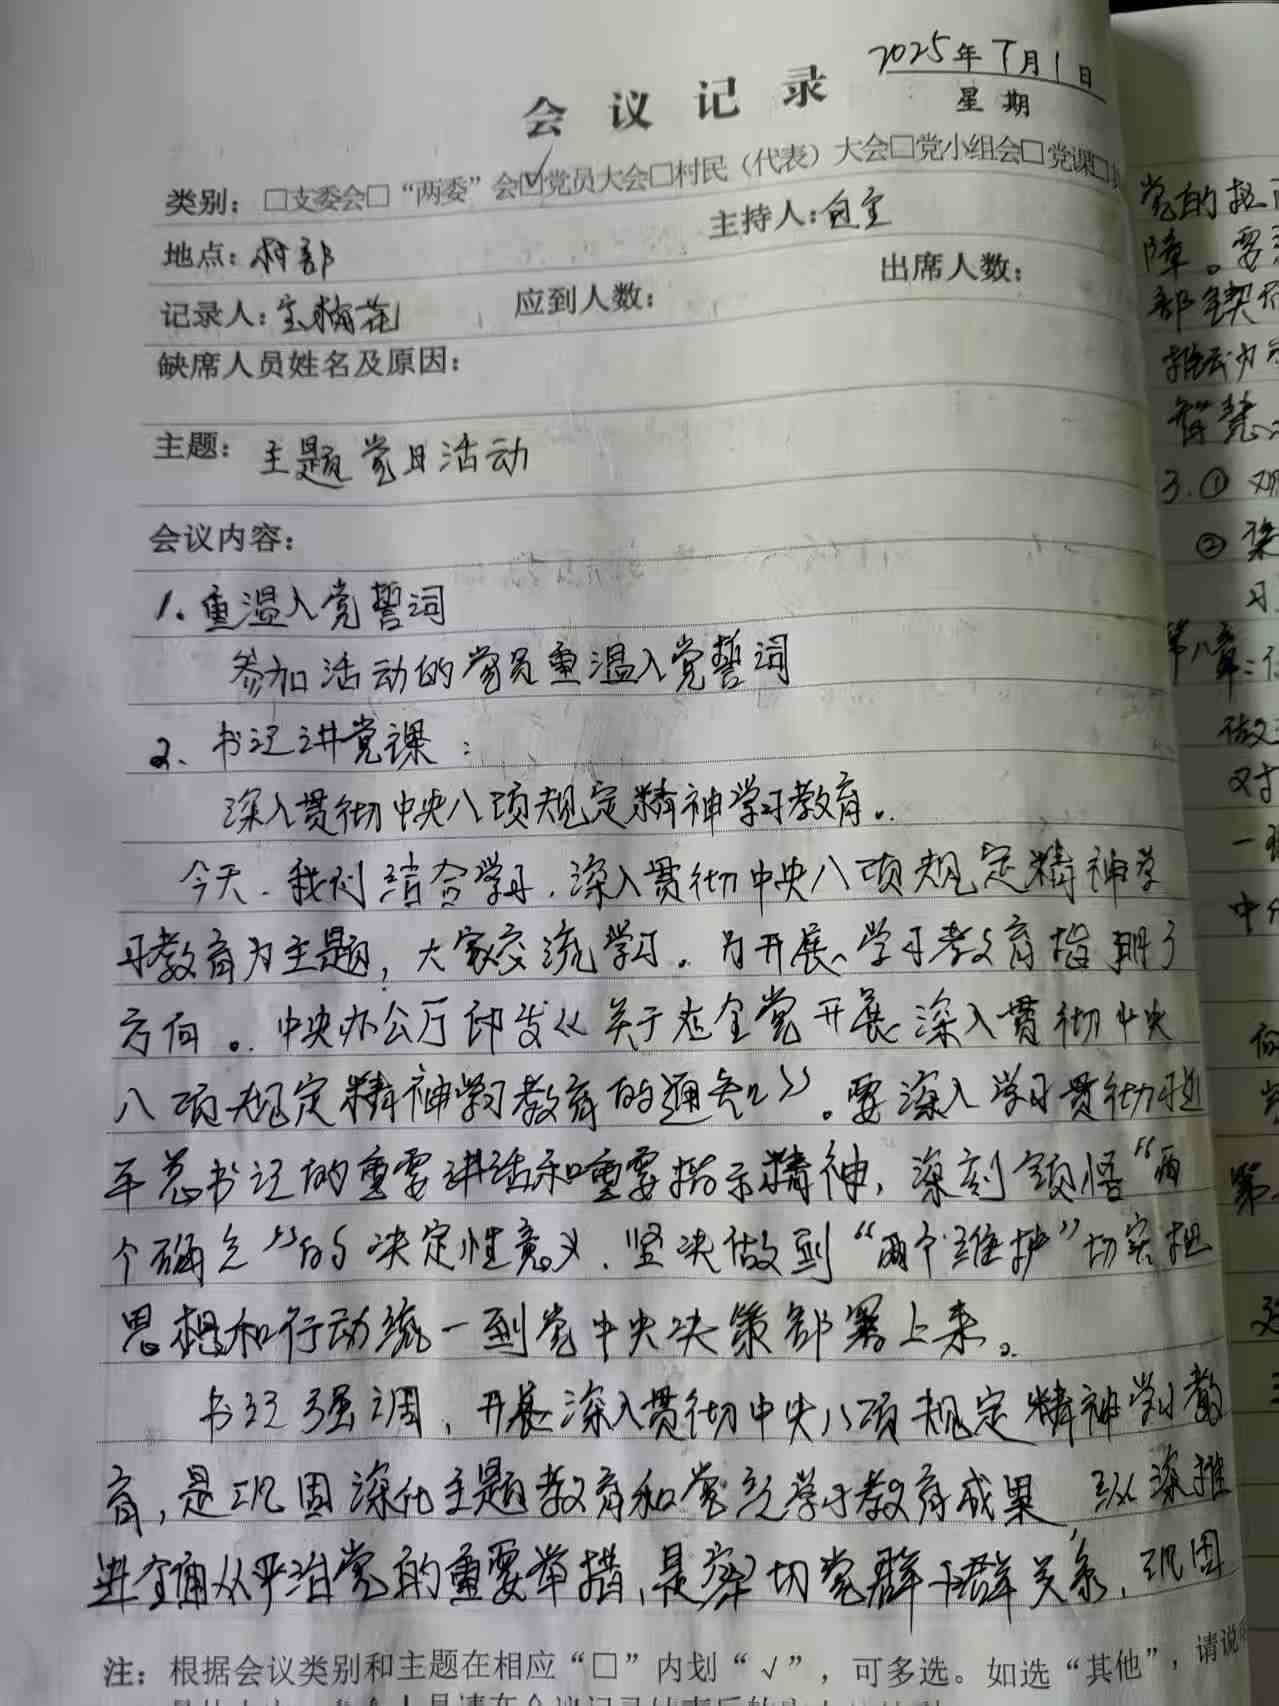 2025年7月1日
会议记录
星期
类别：□支委会□“两委”会☑党员大会□村民（代表）大会□党小组会□党课□
地点：村部
主持人：白宝
记录人：宝梅花
应到人数：
出席人数：
缺席人员姓名及原因：
主题：主题党日活动
会议内容：
1.重温入党誓词
参加活动的党员重温入党誓词
2、书记讲党课：
深入贯彻中央八项规定精神学习教育。
今天.我们结合学习.深入贯彻中央八项规定精神学
习教育为主题，大家交流学习。为开展学习教育指明了
方向。中央办公厅印发《关于在全党开展深入贯彻中央
八项规定精神学习教育的通知》。要深入学习贯彻习近
平总书记的重要讲话和重要指示精神，深刻领悟“两
个确立”的决定性意义.坚决做到“两个维护”切实把
思想和行动统一到党中央决策部署上来。
书记强调，开展深入贯彻中央八项规定精神学习教
育，是巩固深化主题教育和党纪学习教育成果，纵深推
进全面从严治党的重要举措，是密切党群干群关系，巩固
注：根据会议类别和主题在相应“□”内划“√”，可多选。如选“其他”，请说
党的执
障。要
部锲
推动
智慧
3.①
②
习
第八章
做
对
一
中
第